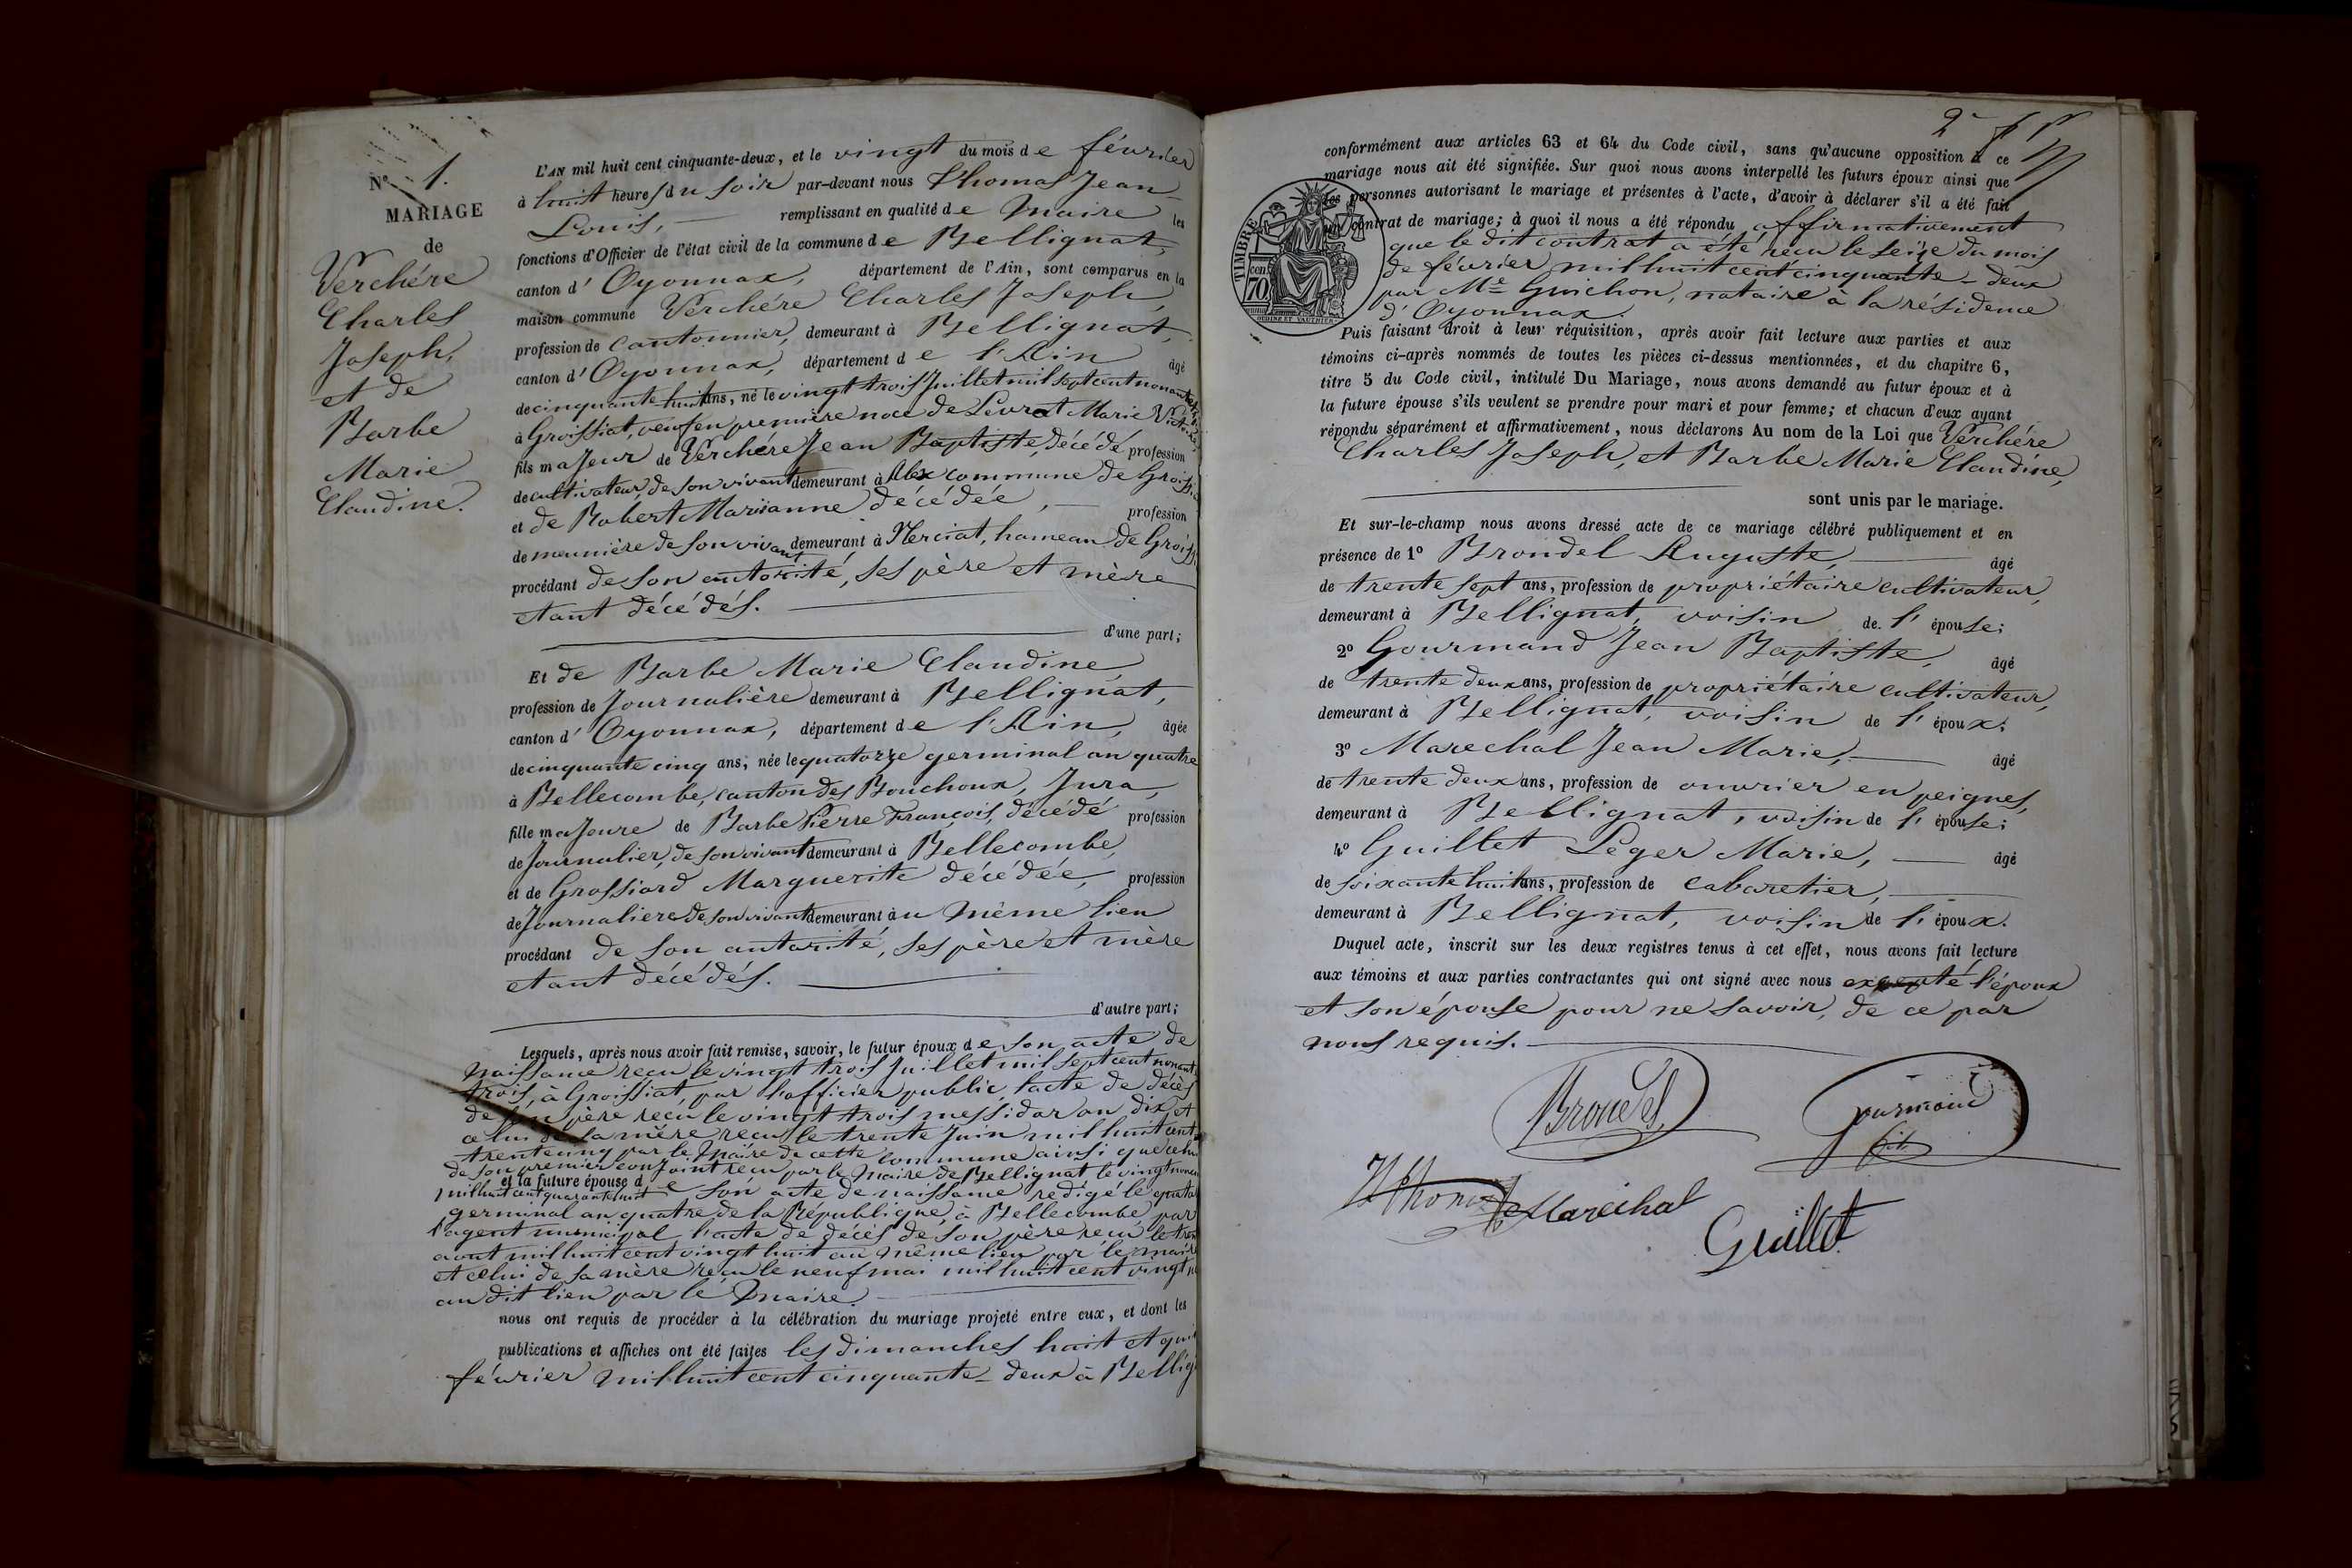 N° 1.
MARIAGE
de
Verchére
Charles
Joseph,
et de
Barbe
Marie
Claudine.
L'AN mil huit cent cinquante-deux, et le vingt du mois de février
à huit heures du soir par-devant nous Thomas Jean
Louis, remplissant en qualité de Maire les
fonctions d'Officier de l'état civil de la commune de Bellignat,
canton d'Oyonnax, département de l'Ain, sont comparus en la
maison commune Verchére Charles Joseph,
profession de cantonnier, demeurant à Bellignat,
canton d'Oyonnax, département de l'Ain âgé
de cinquante huit ans, né le vingt trois Juillet mil sept cent nonante trois
à Groissiat, veuf en première noce de Levrat Marie Victoire,
fils majeur de Verchére Jean Baptiste, décédé profession
de cultivateur, de son vivant demeurant à Alex commune de
et de Robert Marianne décédée, profession
de meunière de son vivant demeurant à hameau de
procédant de son autorité, ses père et mère
etant décédés.
d'une part;
Et de Barbe Marie Claudine,
profession de Journalière demeurant à Bellignat,
canton d'Oyonnax, département de l'Ain, âgée
de cinquante cinq ans, née le quatorze germinal an quatre
à Bellecombe, canton des Bouchoux, Jura,
fille majeure de Barbe Pierre François, décédé profession
de Journalier, de son vivant demeurant à Bellecombe,
et de Grossiard Marguerite décédée, profession
de Journaliere de son vivant demeurant au même lieu
procédant de son autorité, ses père et mère
etant décédés.
d'autre part;
Lesquels, après nous avoir fait remise, savoir, le futur époux de son acte de
naissance reçu le vingt trois Juillet mil sept cent nonante
trois, à Groissiat, par l'officier public, l'acte de décès
de son père reçu le vingt trois messidor an dix, et
celui de sa mère reçu le trente Juin mil huit cent
trente cinq par le Maire de cette commune ainsi que celui
de son premier conjoint reçu par le Maire de Bellignat le vingt
mil huit cent quarante huit et la future épouse de son acte de naissance rédigé le
germinal an quatre de la République, à Bellecombe, par
l'agent municipal l'acte de décès de son père reçu le
aout mil huit cent vingt huit au même lieu par le maire
et celui de sa mère reçu le neuf mai mil huit cent vingt
au dit lieu par le Maire.
nous ont requis de procéder à la célébration du mariage projeté entre eux, et dont les
publications et affiches ont été faites les dimanches huit et
février mil huit cent cinquante-deux à
2e
conformément aux articles 63 et 64 du Code civil, sans qu'aucune opposition à ce
mariage nous ait été signifiée. Sur quoi nous avons interpellé les futurs époux ainsi que
les personnes autorisant le mariage et présentes à l'acte, d'avoir à déclarer s'il a été fait
un contrat de mariage; à quoi il nous a été répondu affirmativement
que le dit contrat a été reçu le seize du mois
de février mil huit cent cinquante-deux
par Me Guichon, notaire à la résidence
d'Oyonnax.
TIMBRE
cen
70
OUDINÉ ET VAUTHIER
Puis faisant droit à leur réquisition, après avoir fait lecture aux parties et aux
témoins ci-après nommés de toutes les pièces ci-dessus mentionnées, et du chapitre 6,
titre 5 du Code civil, intitulé Du Mariage, nous avons demandé au futur époux et à
la future épouse s'ils veulent se prendre pour mari et pour femme; et chacun d'eux ayant
répondu séparément et affirmativement, nous déclarons Au nom de la Loi que Verchére
Charles Joseph, et Barbe Marie Claudine,
sont unis par le mariage.
Et sur-le-champ nous avons dressé acte de ce mariage célébré publiquement et en
présence de 1° Brondel Auguste, âgé
de trente sept ans, profession de propriétaire cultivateur,
demeurant à Bellignat, voisin de l'épouse;
2° Gourmand Jean Baptiste, âgé
de trente deux ans, profession de propriétaire cultivateur,
demeurant à Bellignat, voisin de l'époux;
3° Marechal Jean Marie, âgé
de trente deux ans, profession de ouvrier en peignes,
demeurant à Bellignat, voisin de l'épouse;
4° Guillet Léger Marie, âgé
de soixante huit ans, profession de cabaretier,
demeurant à Bellignat, voisin de l'époux.
Duquel acte, inscrit sur les deux registres tenus à cet effet, nous avons fait lecture
aux témoins et aux parties contractantes qui ont signé avec nous excepté l'époux
et son épouse pour ne savoir, de ce par
nous requis.
Brondel
Gourmand
fils
Thomas
Maréchal
Guillet